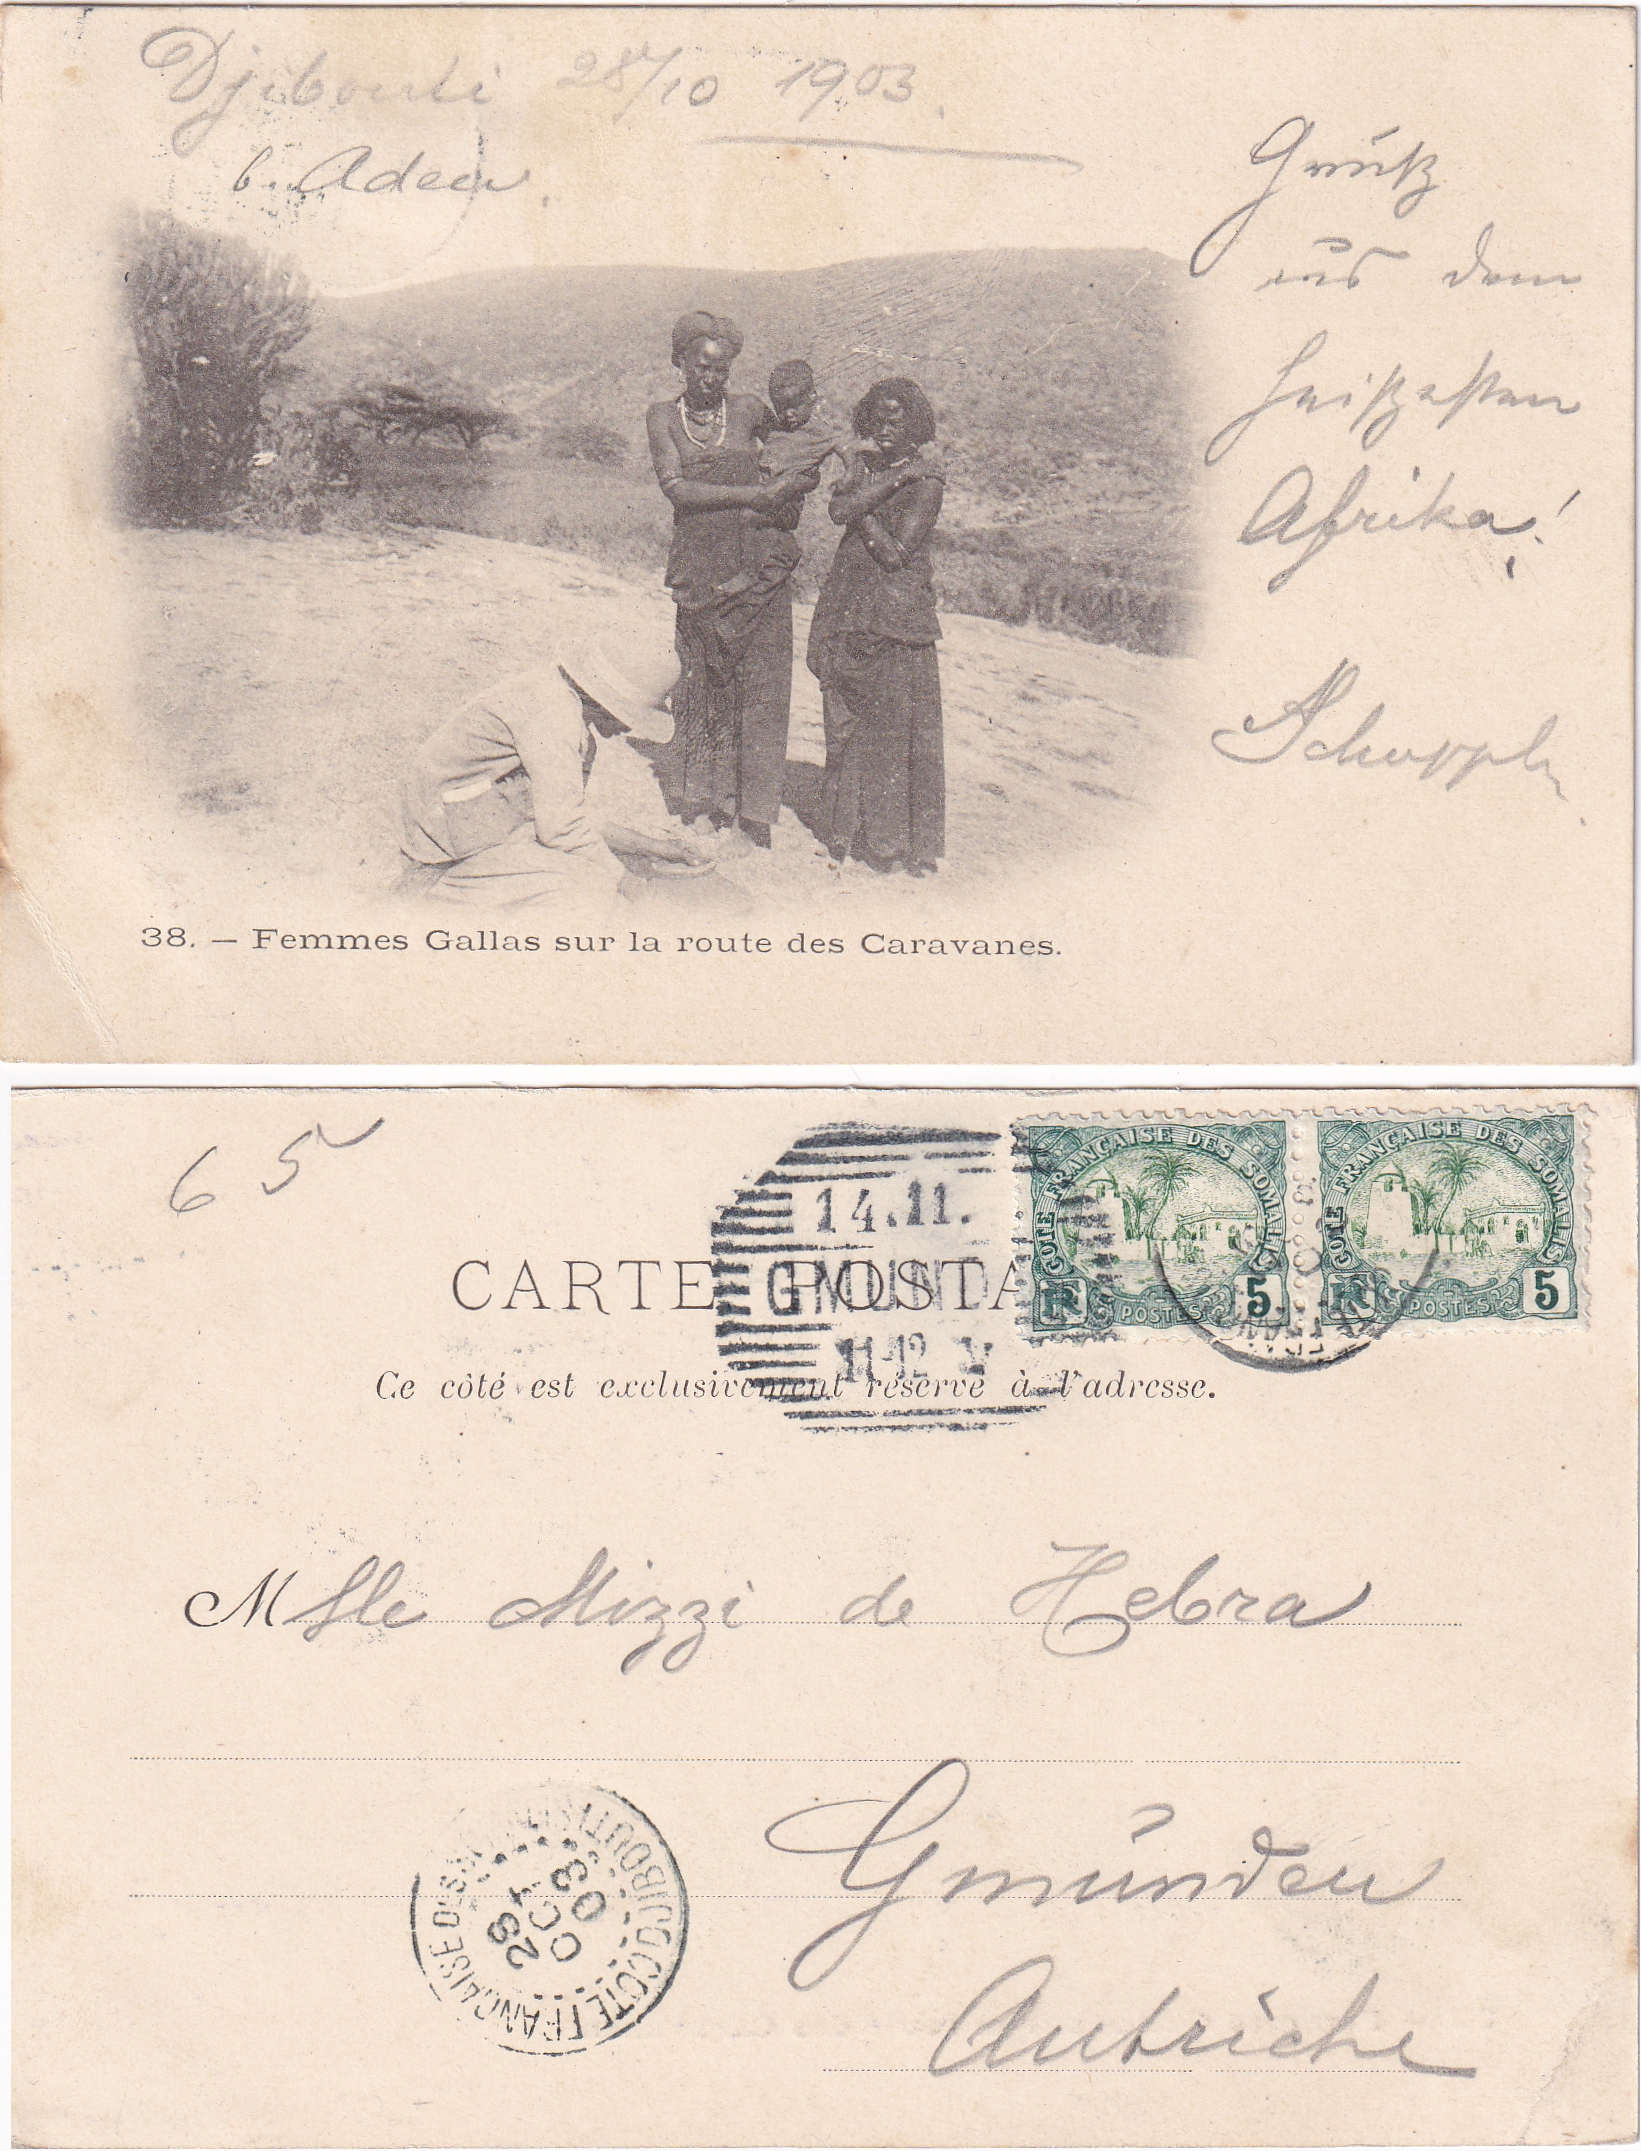 Djibouti 28/10 1903.
b. Aden.
Gruß
aus dem
heißesten
Afrika!
38. — Femmes Gallas sur la route des Caravanes.
6 5
14.11.
GMUND
11-12 V
COTE FRANÇAISE DES SOMALIS
RF POSTES 5
COTE FRANÇAISE DES SOMALIS
RF POSTES 5
CARTE POSTA
Ce côté est exclusivement réservé à l'adresse.
Mlle Mizzi de Hebra
Gmünden
Autriche
DJIBOUTI COTE FRANÇAISE DES
28
OCT
03